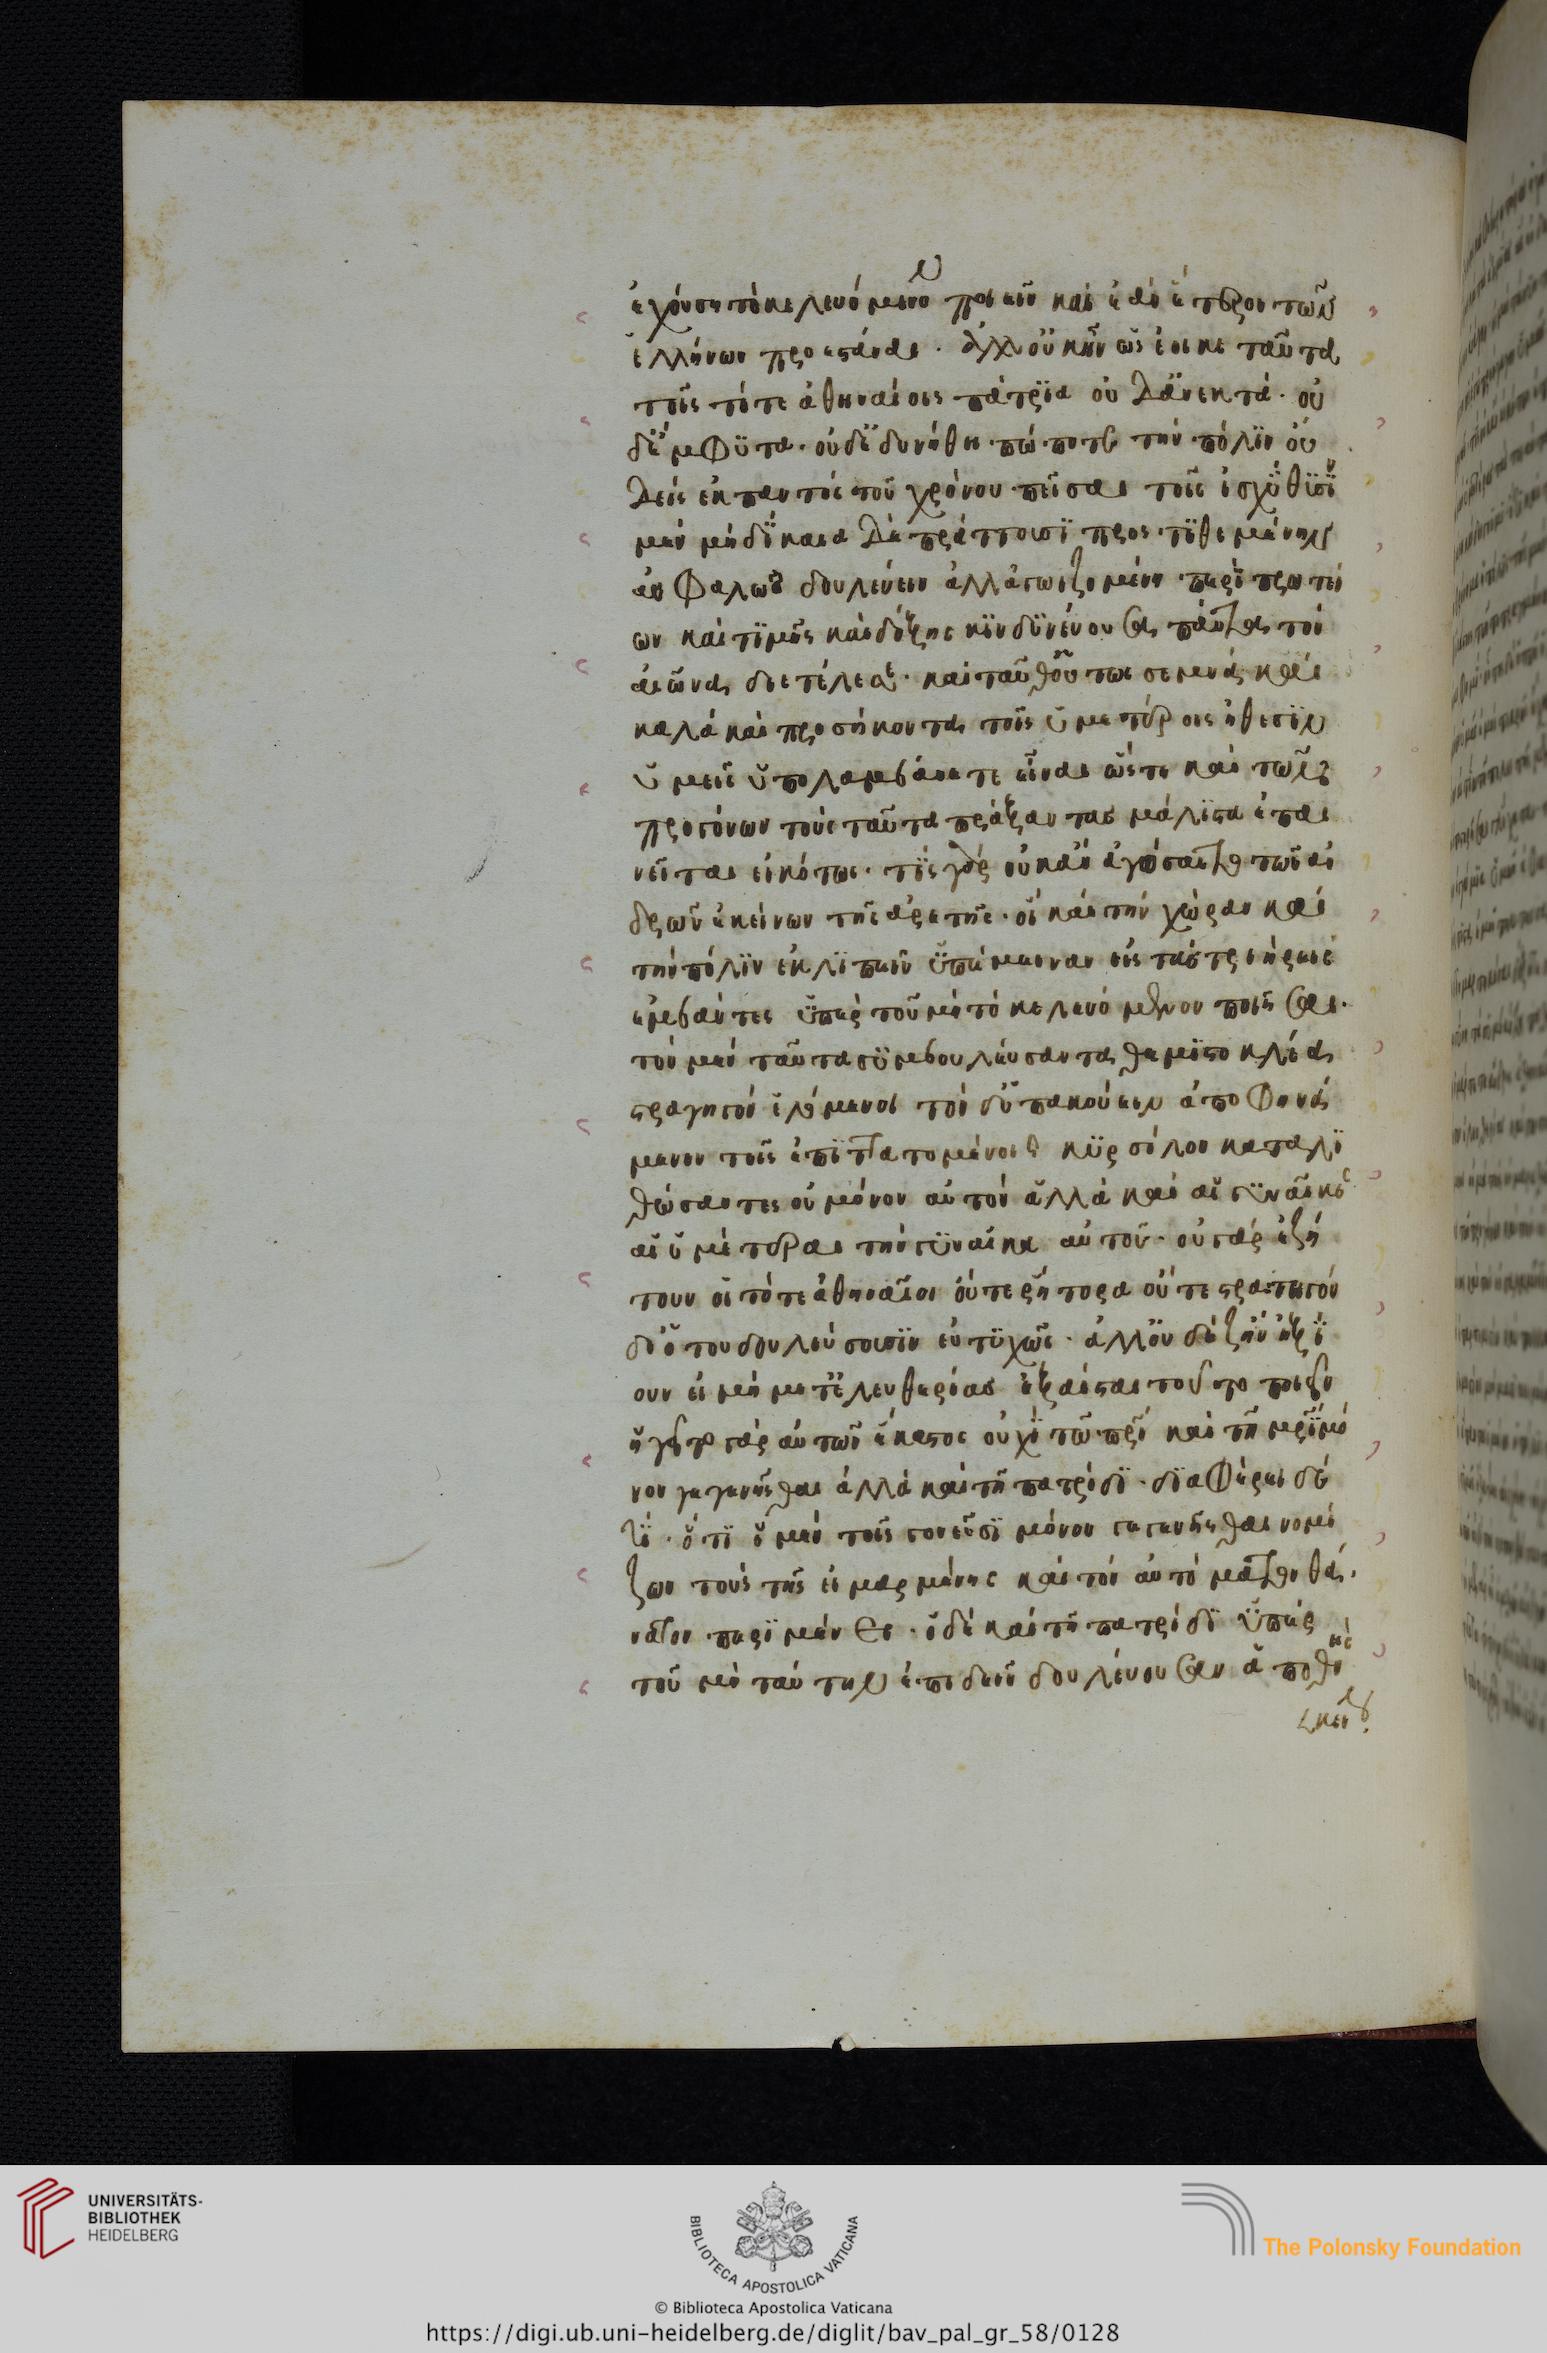 ἐχούση τὸ κελευόμενον ποιεῖν καὶ ἐᾶν ἕτερον τῶν
ἑλλήνων προεστάναι · ἀλλ' οὐκ ἦν ὡς ἔοικε ταῦτα
τοῖς τότε ἀθηναίοις πάτρϊα οὐδ' ἀνεκτά · οὐ
δ' ἔμφϋτα · οὐδ' ἐδυνήθη πώποτε τὴν πόλϊν οὐ
δεὶς ἐκ παντὸς τοῦ χρόνου πεῖσαι τοῖς
μὲν μὴ δίκαια δὲ πράττουσϊ προστϊθεμένην
ἀσφαλῶς δουλεύειν ἀλλ' ἀγωνϊζομένη περὶ πρωτεί
ων καὶ τϊμῆς καὶ δόξης κϊνδϋνεύουσα πάντα τὸν
αἰῶνα διετέλεσε · καὶ ταῦθ' οὕτως σεμνὰ καὶ
καλὰ καὶ προσήκοντα τοῖς ὑμετέροις ἤθεσϊν
ὑμεῖς ὑπολαμβάνετε εἶναι ὥστε καὶ τῶν
προγόνων τοὺς ταῦτα πράξαντας μάλϊστα ἐπαι
νεῖται εἰκότως · τίς γὰρ οὐκ ἂν ἀγάσαιτο τῶν ἀν
δρῶν ἐκείνων τῆς ἀρετῆς · οἳ καὶ τὴν χώραν καὶ
τὴν πόλϊν ἐκλϊπεῖν ὑπέμειναν εἰς τὰς τρϊήρεις
ἐμβάντες ὑπὲρ τοῦ μὴ τὸ κελευόμενον ποιῆσαι ·
τὸν μὲν ταῦτα σϋμβουλεύσαντα θεμϊστοκλέα
στρατηγὸν ἑλόμενοι τὸν δ' ὑπακούειν ἀποφηνά
μενον τοῖς ἐπϊταττομένοις κϋρσίλον καταλϊ
θώσαντες οὐ μόνον αὐτὸν ἀλλὰ καὶ αἱ γϋναῖκες
αἱ ὑμέτεραι τὴν γϋναῖκα αὐτοῦ · οὐ γὰρ ἐζή
τουν οἱ τότε ἀθηναῖοι οὔτε ῥήτορα οὔτε στρατηγὸν
δι' ὅτου δουλεύσουσϊν εὐτϋχῶς · ἀλλ' οὐδὲ ζῆν ἠξί
ουν εἰ μὴ μετ' ἐλευθερίας ἐξέσται τοῦτο ποιεῖν
ἡγεῖτο γὰρ αὐτῶν ἕκαστος οὐχὶ τῷ πρὶ καὶ τῆ μρὶ μό
νον γεγενῆσθαι ἀλλὰ καὶ τῆ πατρίδϊ · δϊαφέρει δέ
τί · ὅτϊ ὁ μὲν τοῖς γονεῦσϊ μόνον γεγενῆσθαι νομί
ζων τοὺς τῆς εἱμαρμένης καὶ τὸν αὐτόματον θά
νατον περϊμένει · ὁ δὲ καὶ τῆ πατρίδϊ ὑπὲρ
τοῦ μὴ ταύτην ἐπιδεῖν δουλεύουσαν ἀποθν